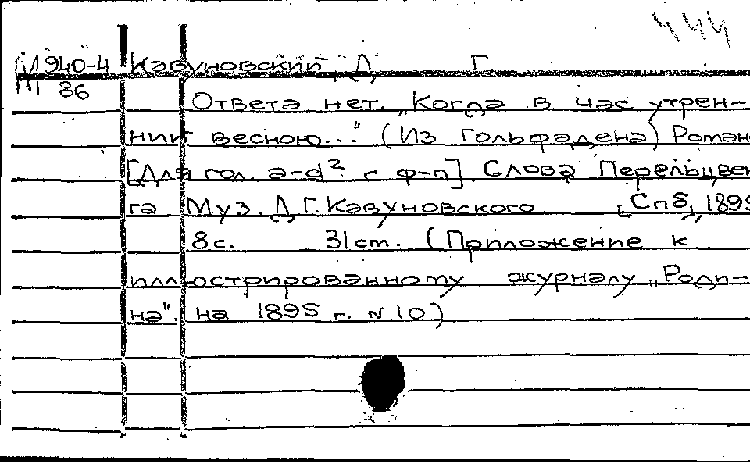 444
М 940-4 Кавуновский, Д. Г.
86
Ответа нет. „Когда в час утрен-
ний весною..." (Из Гольфадена) Романс
[Для гол. a-d² с ф-п] Слова Перельцвей-
га Муз. Д.Г. Кавуновского [Спб, 1895]
8с. 31 cm. (Приложение к
иллюстрированному журналу „Роди-
на". на 1895 г. N 10)